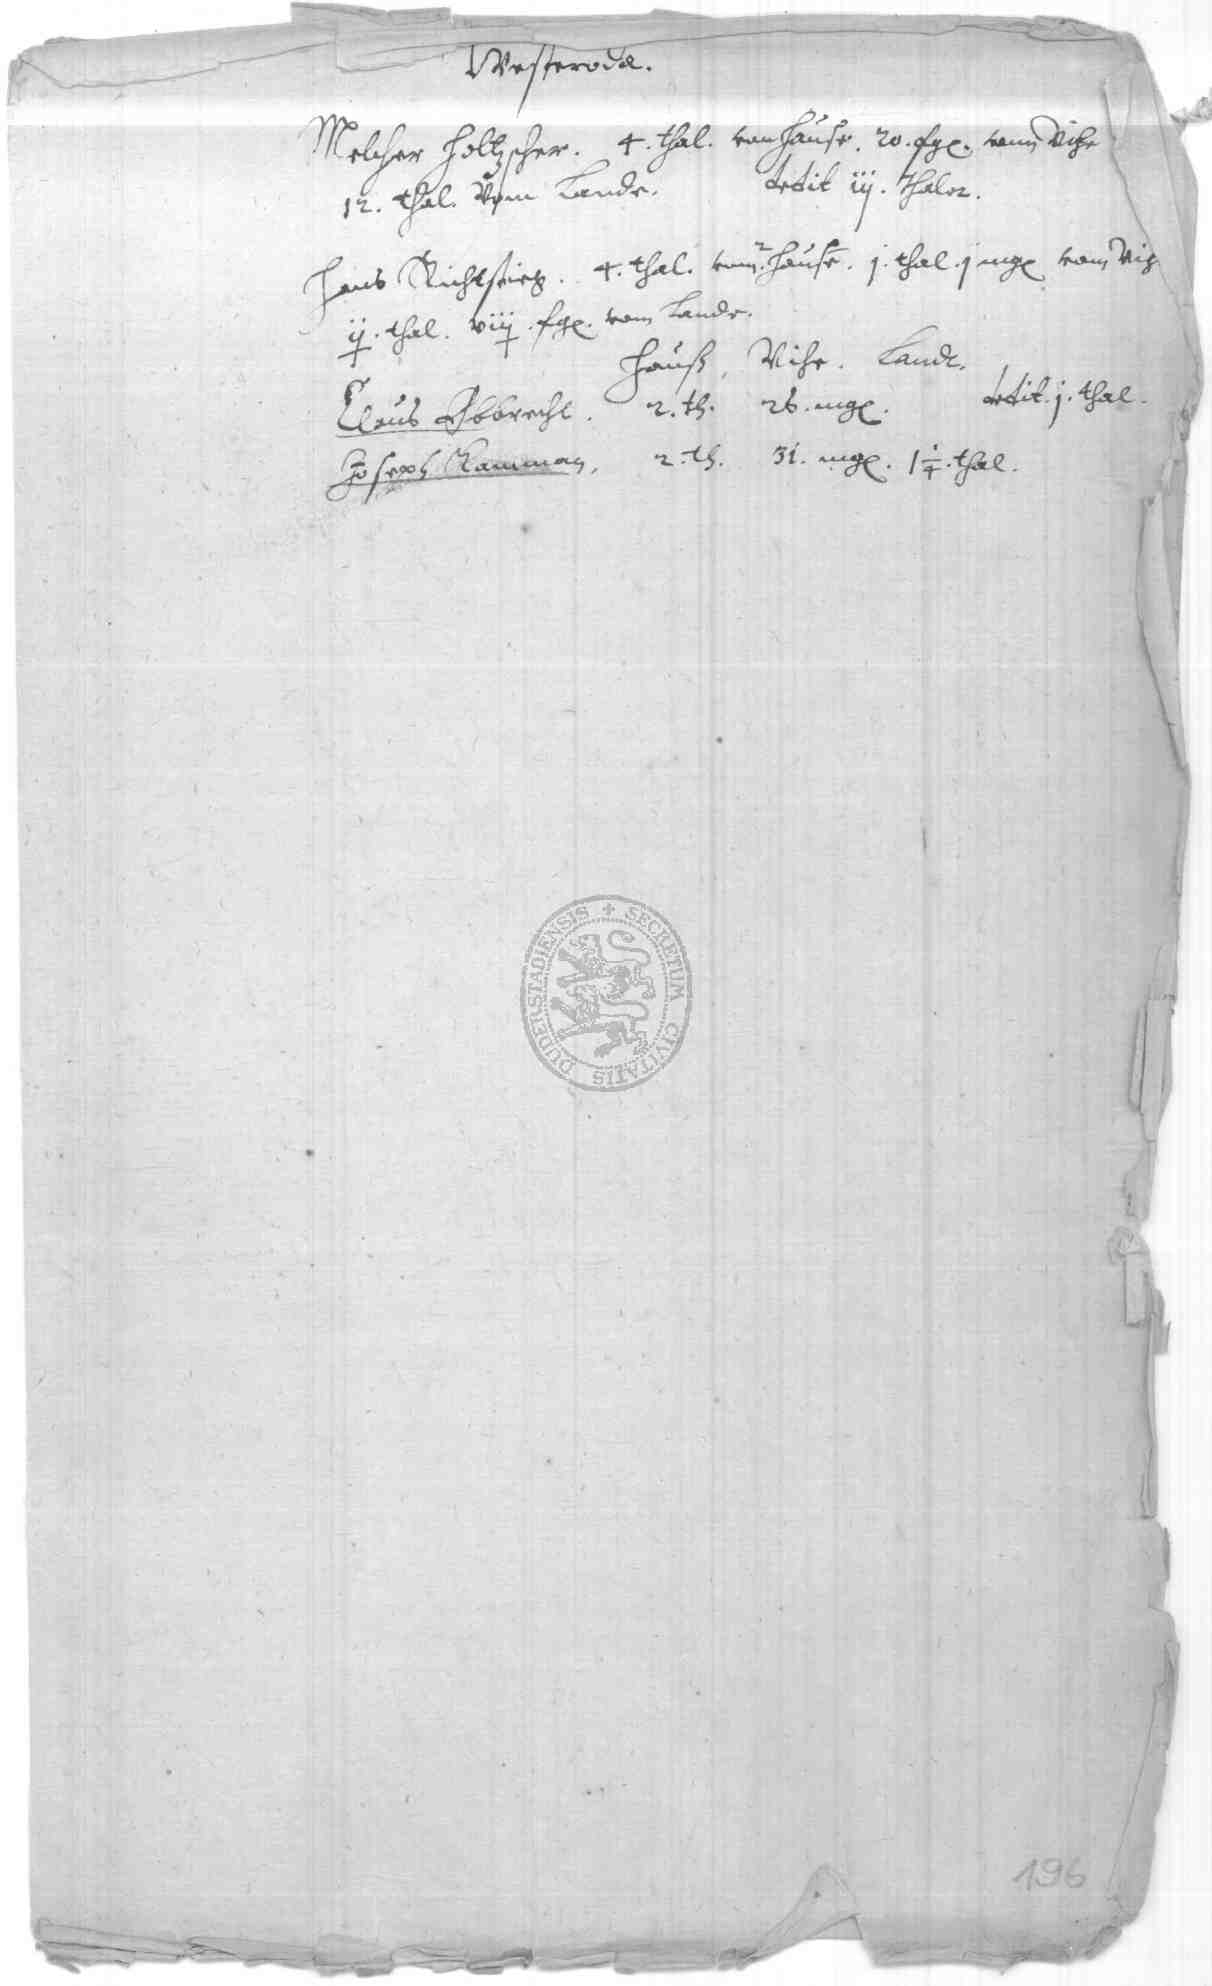 Westerode.
Melcher Holtzscher. 4. thal. vom Hause. 20. fgr. vom Vihe
12. thal. Vom Lande. dedit iij. thaler.
Hans 4. thal. vom 2 Hause. j. thal. j mgr vom Vih
ij. thal. viij. fgr. vom Lande.
Hauß, Vihe. Landt.
Claus 2. th. 26. mgr. dedit. j. thal.
Joseph 2. th. 31. mgr. 1 1/4. thal.
SECRETUM CIVITATIS DUDERSTADIENSIS
196